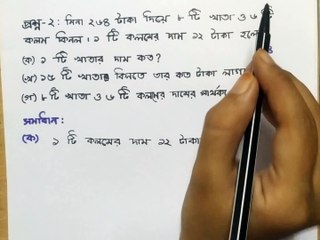 প্রশ্ন-২: মিনা ২৬৪ টাকা দিয়ে ৮ টি খাতা ও ৬
কলম কিনল। ১ টি কলমের দাম ১২ টাকা হলে
(ক) ১ টি খাতার দাম কত?
(খ) ১৫ টি খাতার কিনতে তার কত টাকা লাগ
(গ) ৮ টি খাতা ও ৬ টি কলমের দামের পার্থক্য
সমাধান:
(ক) ১ টি কলমের দাম ১২ টাকা